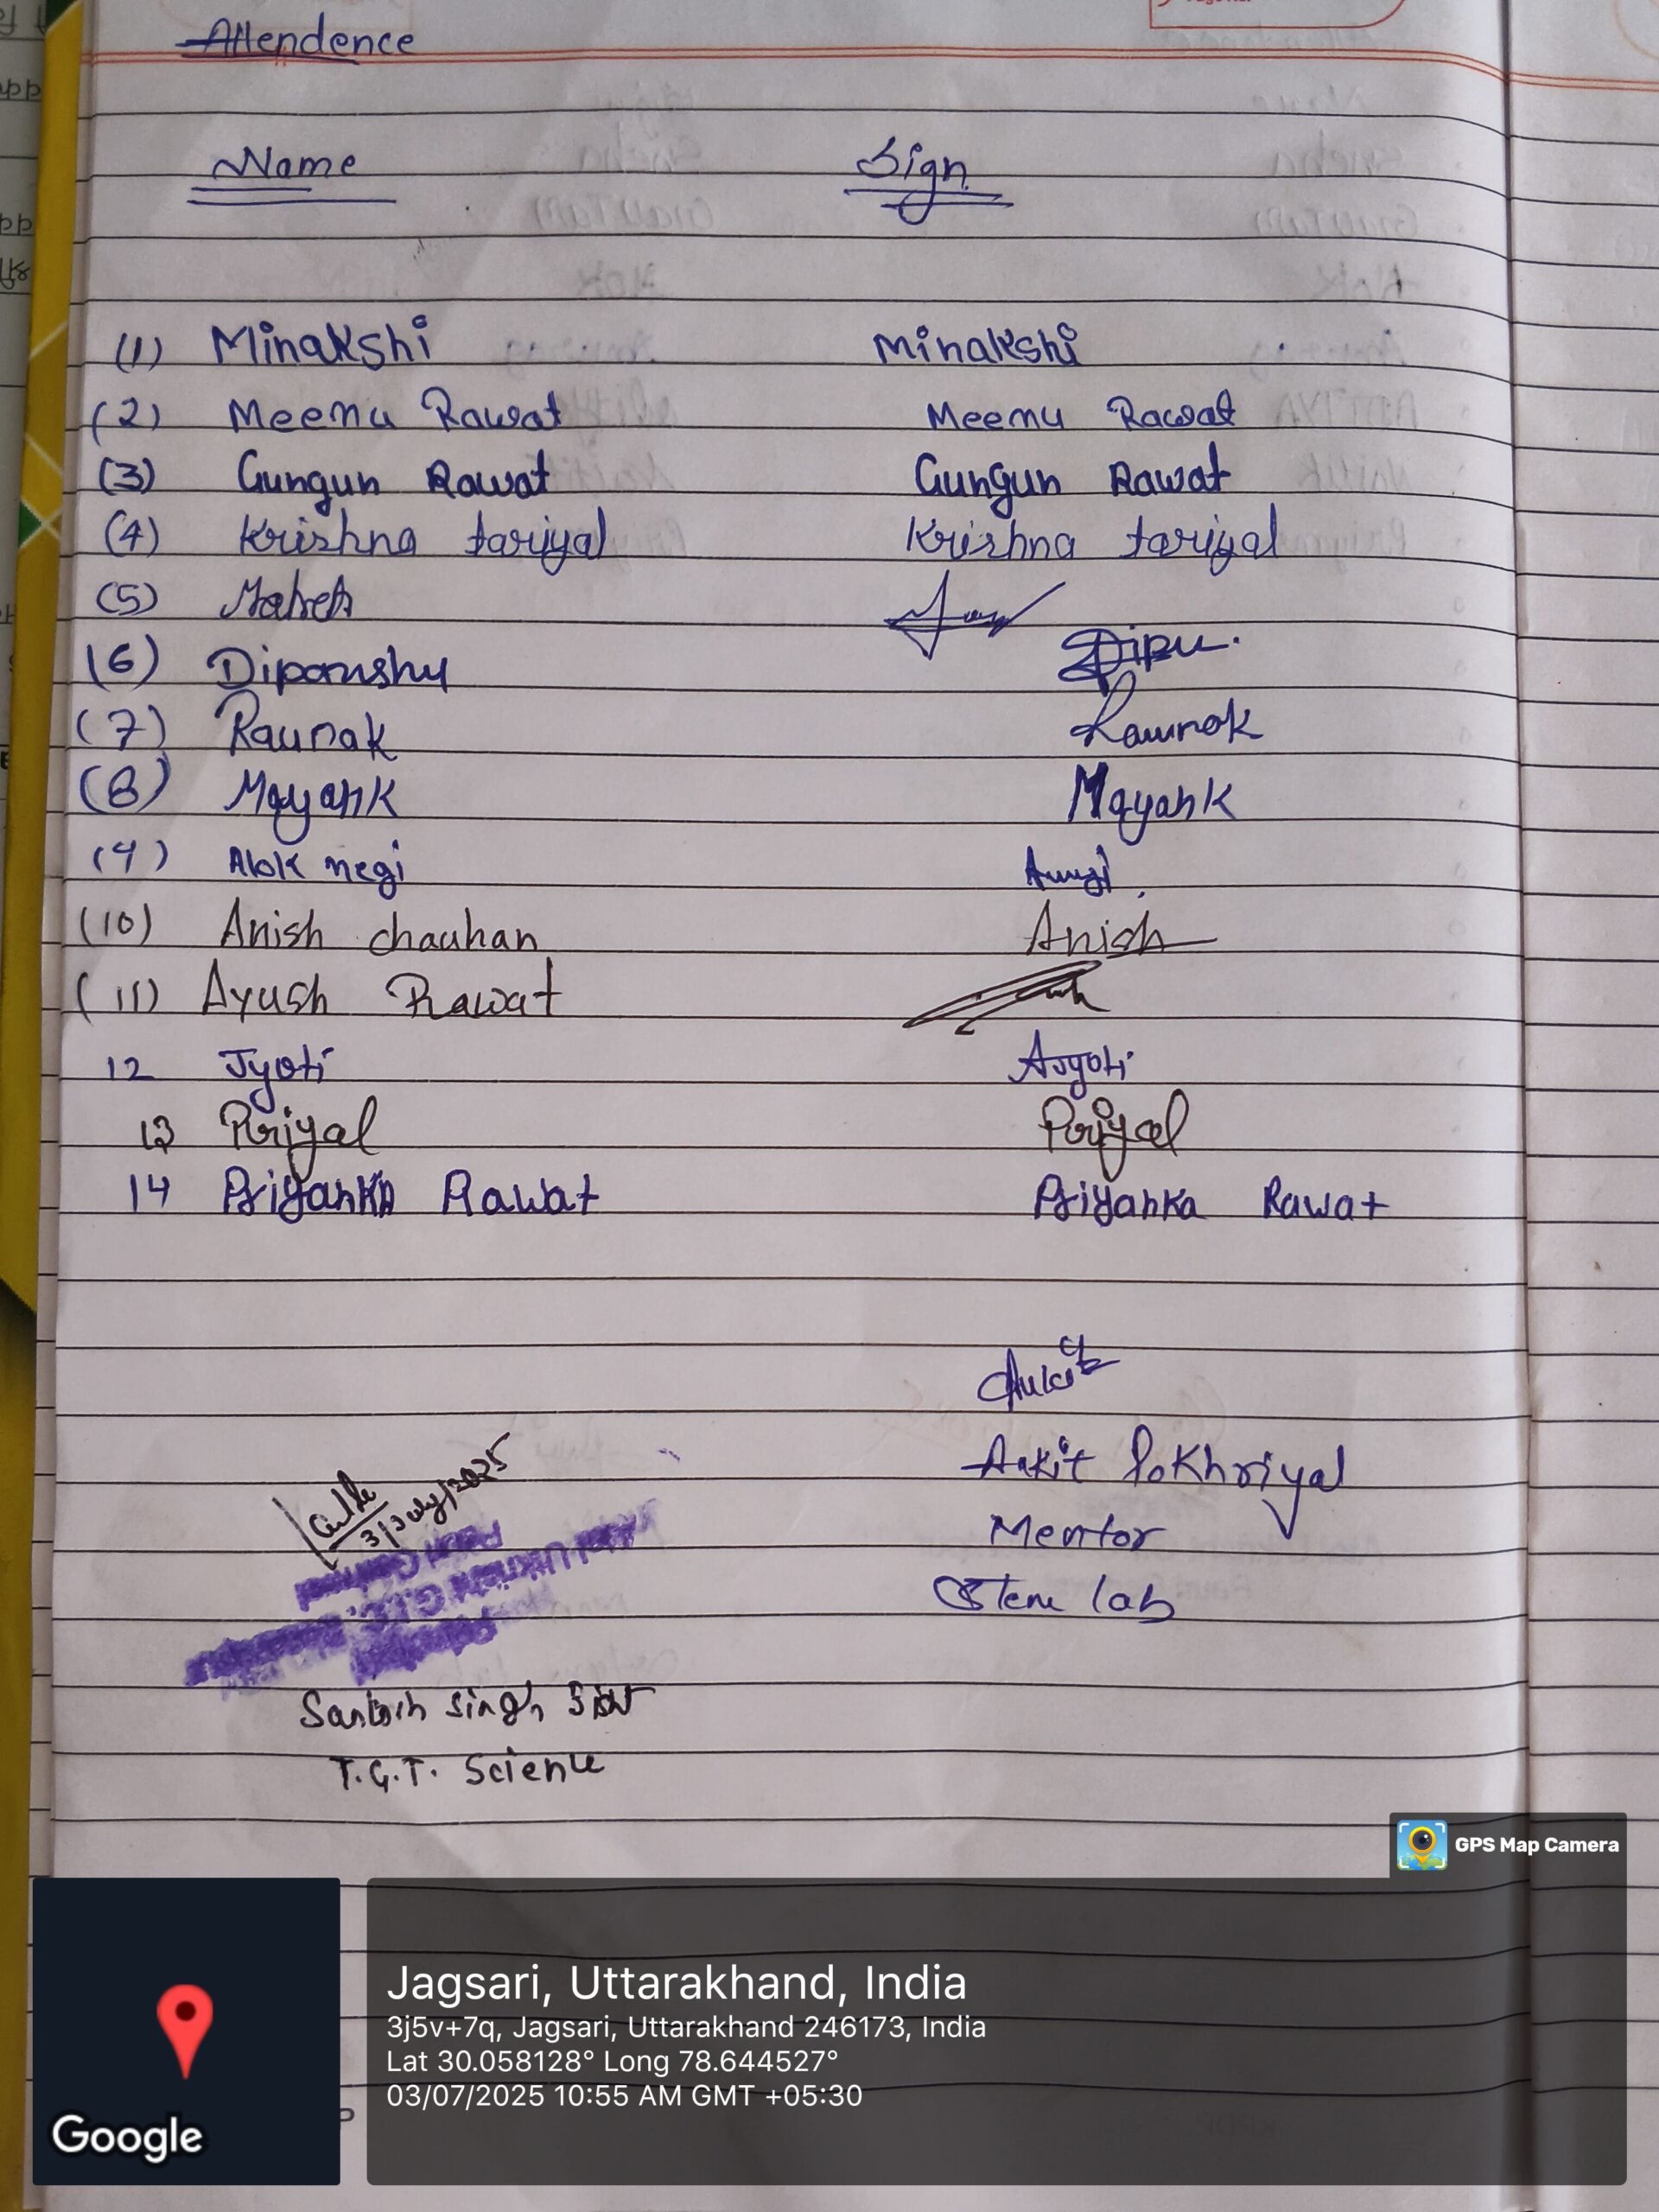 Attendence
Name Sign
(1) Minakshi Minakshi
(2) Meenu Rawat Meenu Rawat
(3) Gungun Rawat Gungun Rawat
(4) Krishna tariyal Krishna tariyal
(5)
(6) Dipanshu Dipu.
(7) Raunak Raunak
(8) Mayank Mayank
(9) Alok negi
(10) Anish chauhan Anish
(11) Ayush Rawat
12 Jyoti Jyoti
13 Priyal Priyal
14 Priyanka Rawat Priyanka Rawat
Ankit
Ankit Pokhriyal
Mentor
Stem lab
3/July/2025
Santosh Singh
T.G.T. Science
GPS Map Camera
Jagsari, Uttarakhand, India
3j5v+7q, Jagsari, Uttarakhand 246173, India
Lat 30.058128° Long 78.644527°
03/07/2025 10:55 AM GMT +05:30
Google